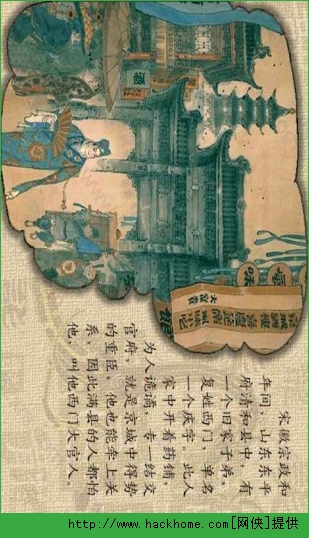 大富贵
宋徽宗政和
年间，山东东平
府清和县中，有
一个旧家子弟，
复姓西门，单名
一个庆字。此人
家中开着药铺，
为人诡谲，专一结交
官府，就是京城中得势
的重臣，他也能牵上关
系，因此满县的人都怕
他，叫他西门大官人。
http://www.hackhome.com[网侠]提供